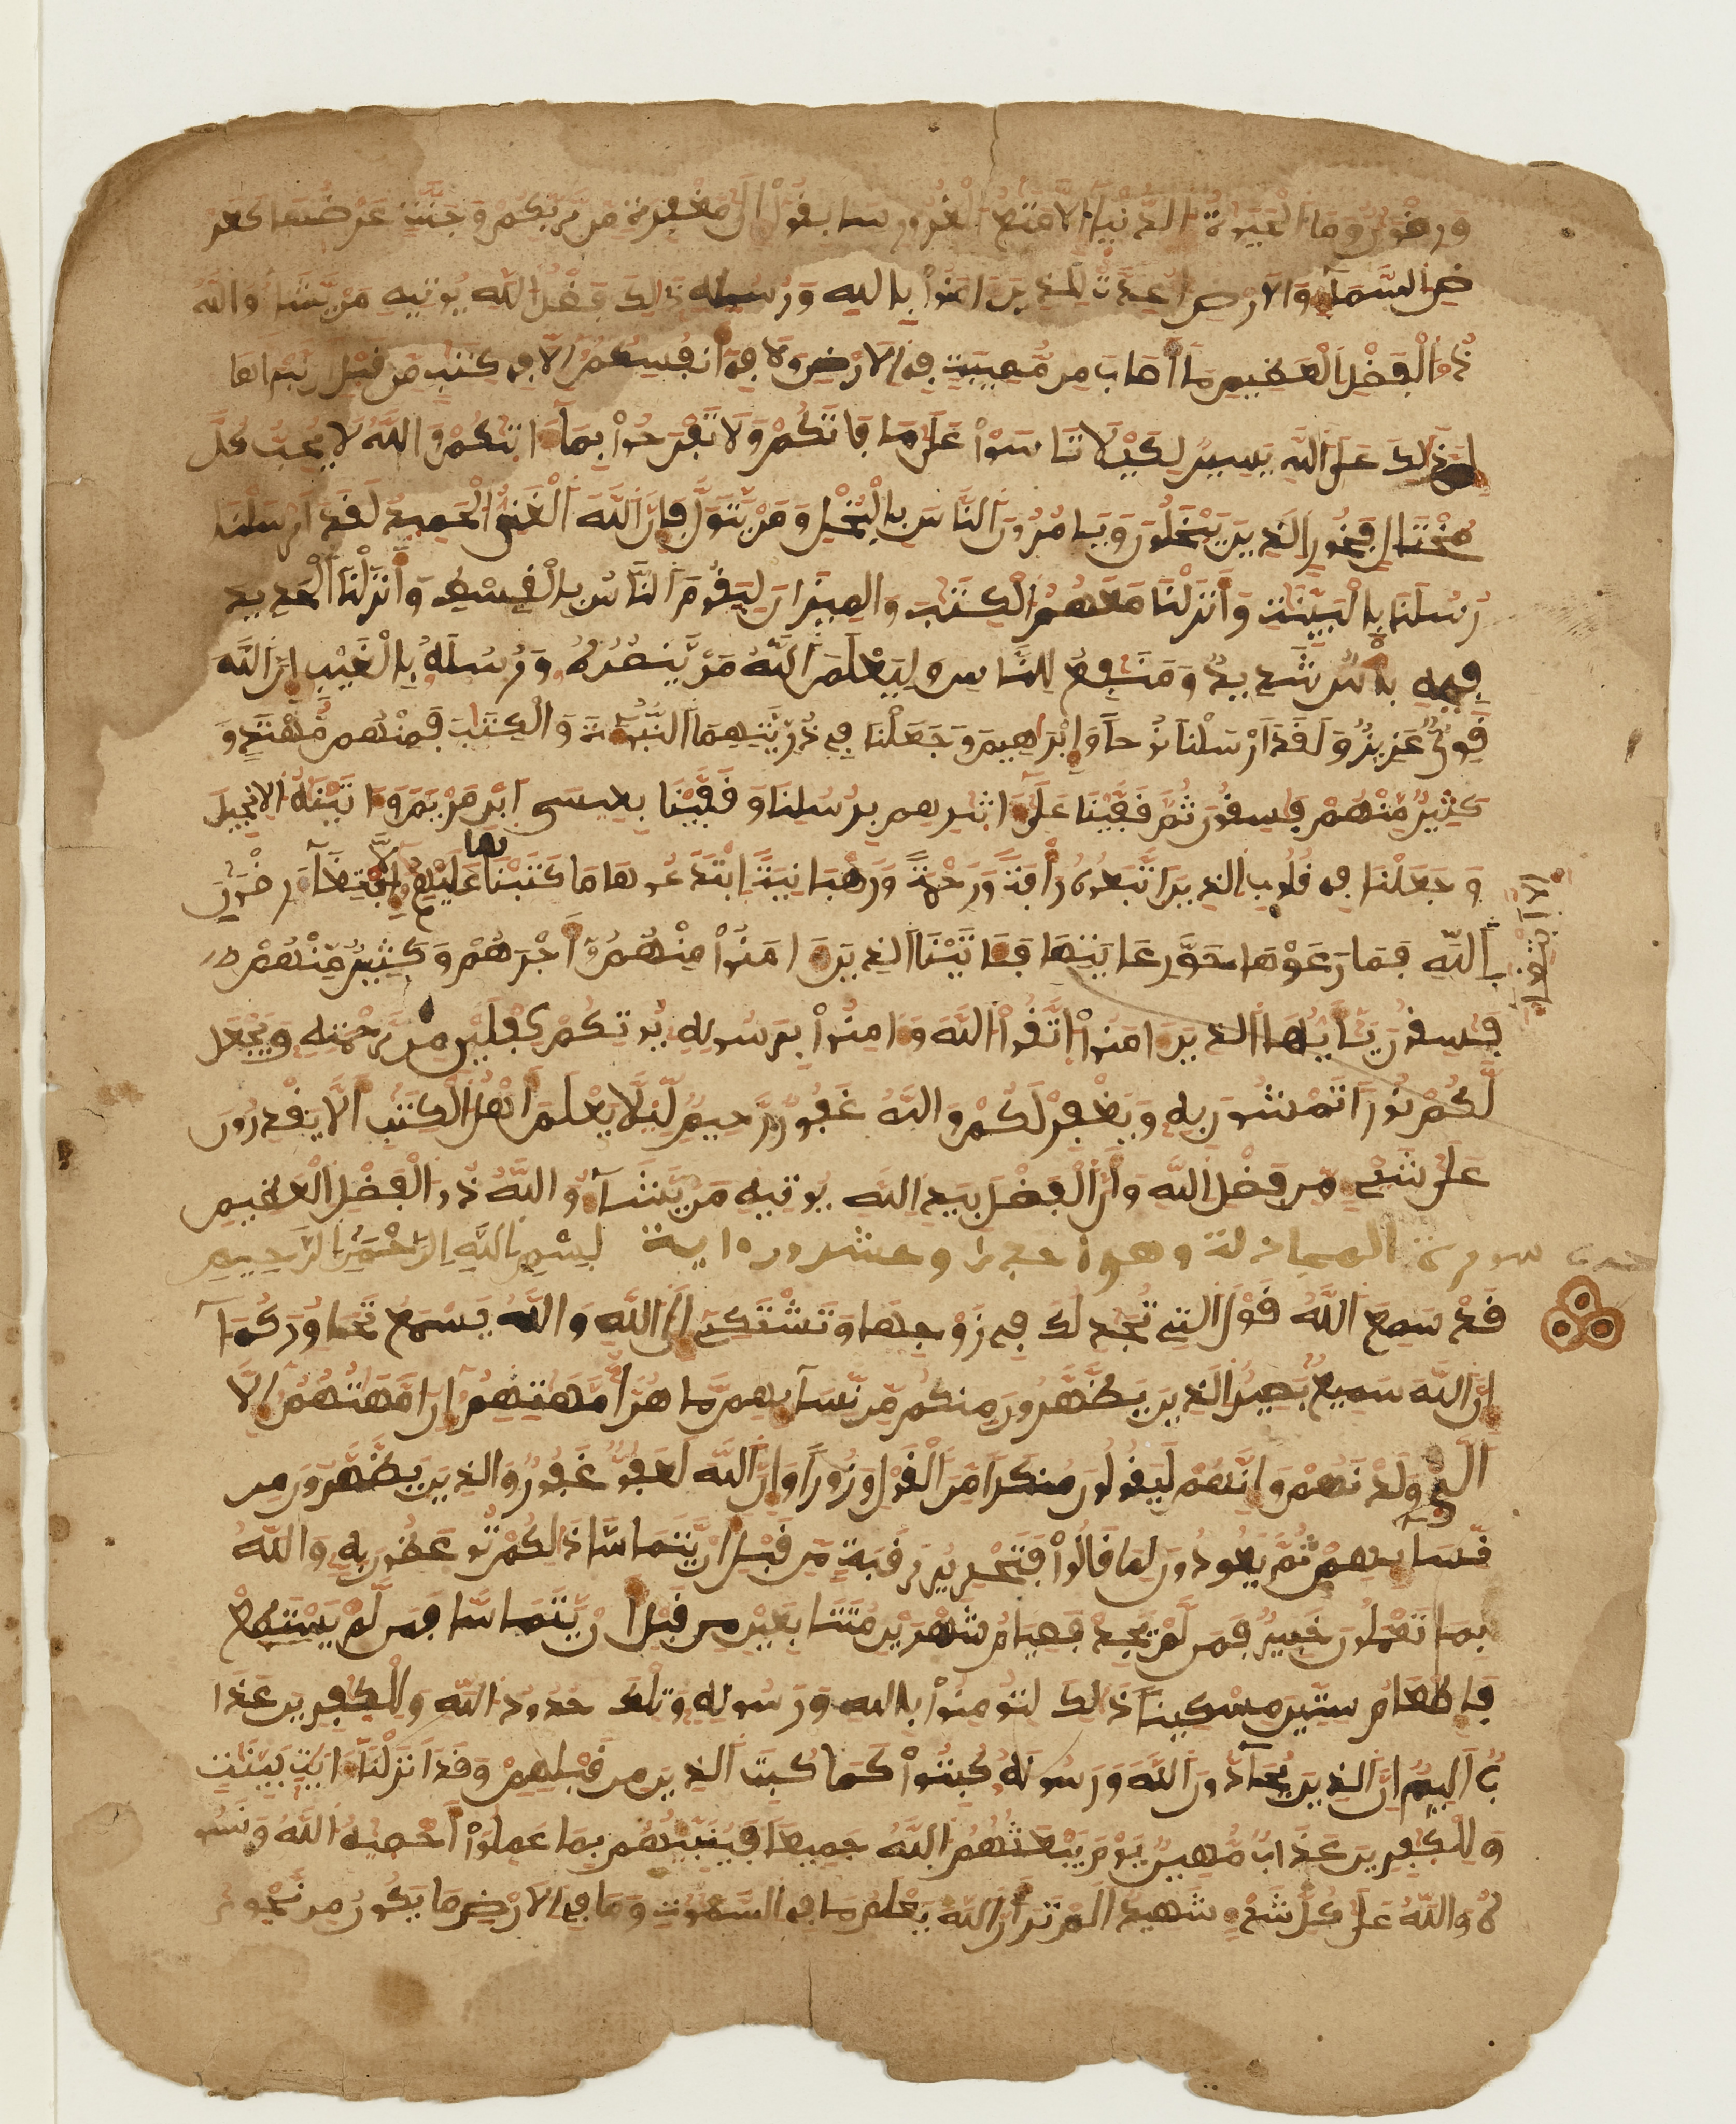 ورضون وما الحيوة الدنيا إلا متع الغرور سابقوا إلى مغفرة من ربكم وجنة عرضها كعر
ض السماء والأرض أعدت للذين ءامنوا بالله ورسله ذلك فضل الله يوتيه من يشاء والله
ذو الفضل العظيم ما أصاب من مصيبة في الأرض ولا في أنفسكم إلا في كتب من قبل أن نبرأها
إن ذلك على الله يسير لكيلا تاسوا على ما فاتكم ولا تفرحوا بما ءاتيكم والله لا يحب كل
مختال فخور الذين يبخلون ويامرون الناس بالبخل ومن يتول فإن الله الغني الحميد لقد أرسلنا
رسلنا بالبينت وأنزلنا معهم الكتب والميزان ليقوم الناس بالقسط وأنزلنا الحديد
فيه بأس شديد ومنفع للناس وليعلم الله من ينصره ورسله بالغيب إن الله
قوي عزيز ولقد أرسلنا نوحا وإبرهيم وجعلنا في ذريتهما النبوءة والكتب فمنهم مهتد و
كثير منهم فسقون ثم قفينا على ءاثرهم برسلنا وقفينا بعيسى ابن مريم وءاتينه الإنجيل
وجعلنا في قلوب الذين اتبعوه رأفة ورحمة ورهبانية ابتدعوها ما كتبنها عليهم إلا ابتغاء رضون
الله فما رعوها حق رعايتها فئاتينا الذين ءامنوا منهم أجرهم وكثير منهم
فسقون يأيها الذين ءامنوا اتقوا الله وءامنوا برسوله يوتكم كفلين من رحمته ويجعل
لكم نورا تمشون به ويغفر لكم والله غفور رحيم ليلا يعلم أهل الكتب ألا يقدرون
على شيء من فضل الله وأن الفضل بيد الله يوتيه من يشاء والله ذو الفضل العظيم
سورة المجادلة وهو وعشرون اية بسم الله الرحمن الرحيم
قد سمع الله قول التي تجدلك في زوجها وتشتكي إلى الله والله يسمع تحاوركما
إن الله سميع بصير الذين يظهرون منكم من نسائهم ما هن أمهتهم إن أمهتهم إلا
الي ولدنهم وإنهم ليقولون منكرا من القول وزورا وإن الله لعفو غفور والذين يظهرون من
نسائهم ثم يعودون لما قالوا فتحرير رقبة من قبل أن يتماسا ذلكم توعظون به والله
بما تعملون خبير فمن لم يجد فصيام شهرين متتابعين من قبل أن يتماسا فمن لم يستطع
فإطعام ستين مسكينا ذلك لتومنوا بالله ورسوله وتلك حدود الله وللكفرين عذا
ب أليم إن الذين يحادون الله ورسوله كبتوا كما كبت الذين من قبلهم وقد أنزلنا ءايت بينت
وللكفرين عذاب مهين يوم يبعثهم الله جميعا فينبئهم بما عملوا أحصيه الله ونسو
ه والله على كل شيء شهيد ألم تر أن الله يعلم ما في السموت وما في الأرض ما يكون من نجوى